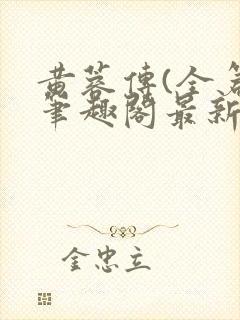 黄蓉傳(全
筆趣閣最新
金忠立